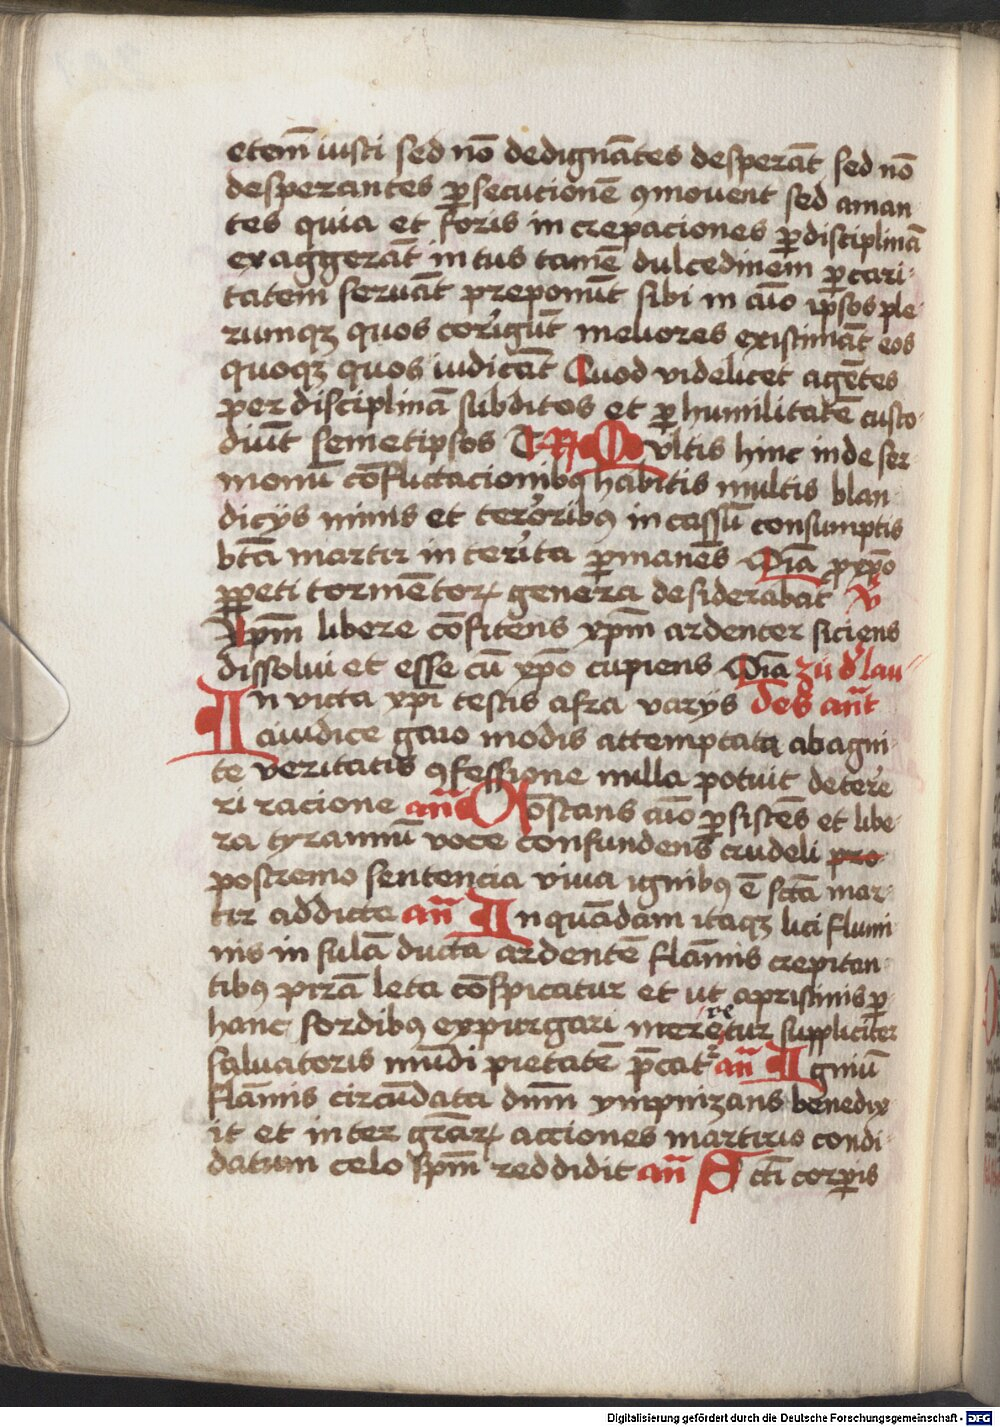 etem̄ iusti sed nō dedignātes desperāt sed nō
desperantes ꝑsecutionē ꝯmouent sed aman
tes quia et foris in crepaciones ꝑ disciplinā
exaggerāt in tus tamē dulcedinem ꝑ cari-
tatem seruāt preponūt sibi in aīo ip̄sos ple
rumqꝫ quos corrigūt meliores existimāt eos
quoqꝫ quos iudicāt Quod videlicet agētes
per disciplinā subditos et ꝑ humilitatē custo-
diūt semetipsos Multis hinc inde ser-
monū cōflictacionibꝯ habitis multis blan-
dicijs minis et terroribꝯ in cassū consumptis
btā martir in territa ꝑmanēs Oīa pro xp̄o
ꝑpeti tormētorꝝ genera desiderabat v̄
Xpm̄ libere cōfitens xpm̄ ardenter siciens
dissolui et esse cū xp̄o cupiens Oīa zū d' lau-
In victa xp̄i testis afra varijs des an̄t
a iudice gaio modis attemptata ab agni-
te veritatis ꝯfessione nulla potuit deterre
ri racione an̄ Constans aīo ꝑsistēs et libe-
ra tyrannū voce confundens crudeli pro
postremo sentencia viua ignibꝯ ē sctā mar-
tir addicta an̄ In quādam itaqꝫ lici flumi
nis in sulā ducta ardentē flāmis crepitan
tibꝯ pirā leta cōspicatur et ut a pristinis ꝑ
hanc sordibꝯ expurgari mereretur suppliciter
saluatoris mūdi pietatē p̄cat' an̄ Igniū
flāmis circūdata dnm̄ ympnizans benedix
it et inter grārꝝ acciones martirio condi
datum celo spm̄ reddidit an̄ Scti corꝑis